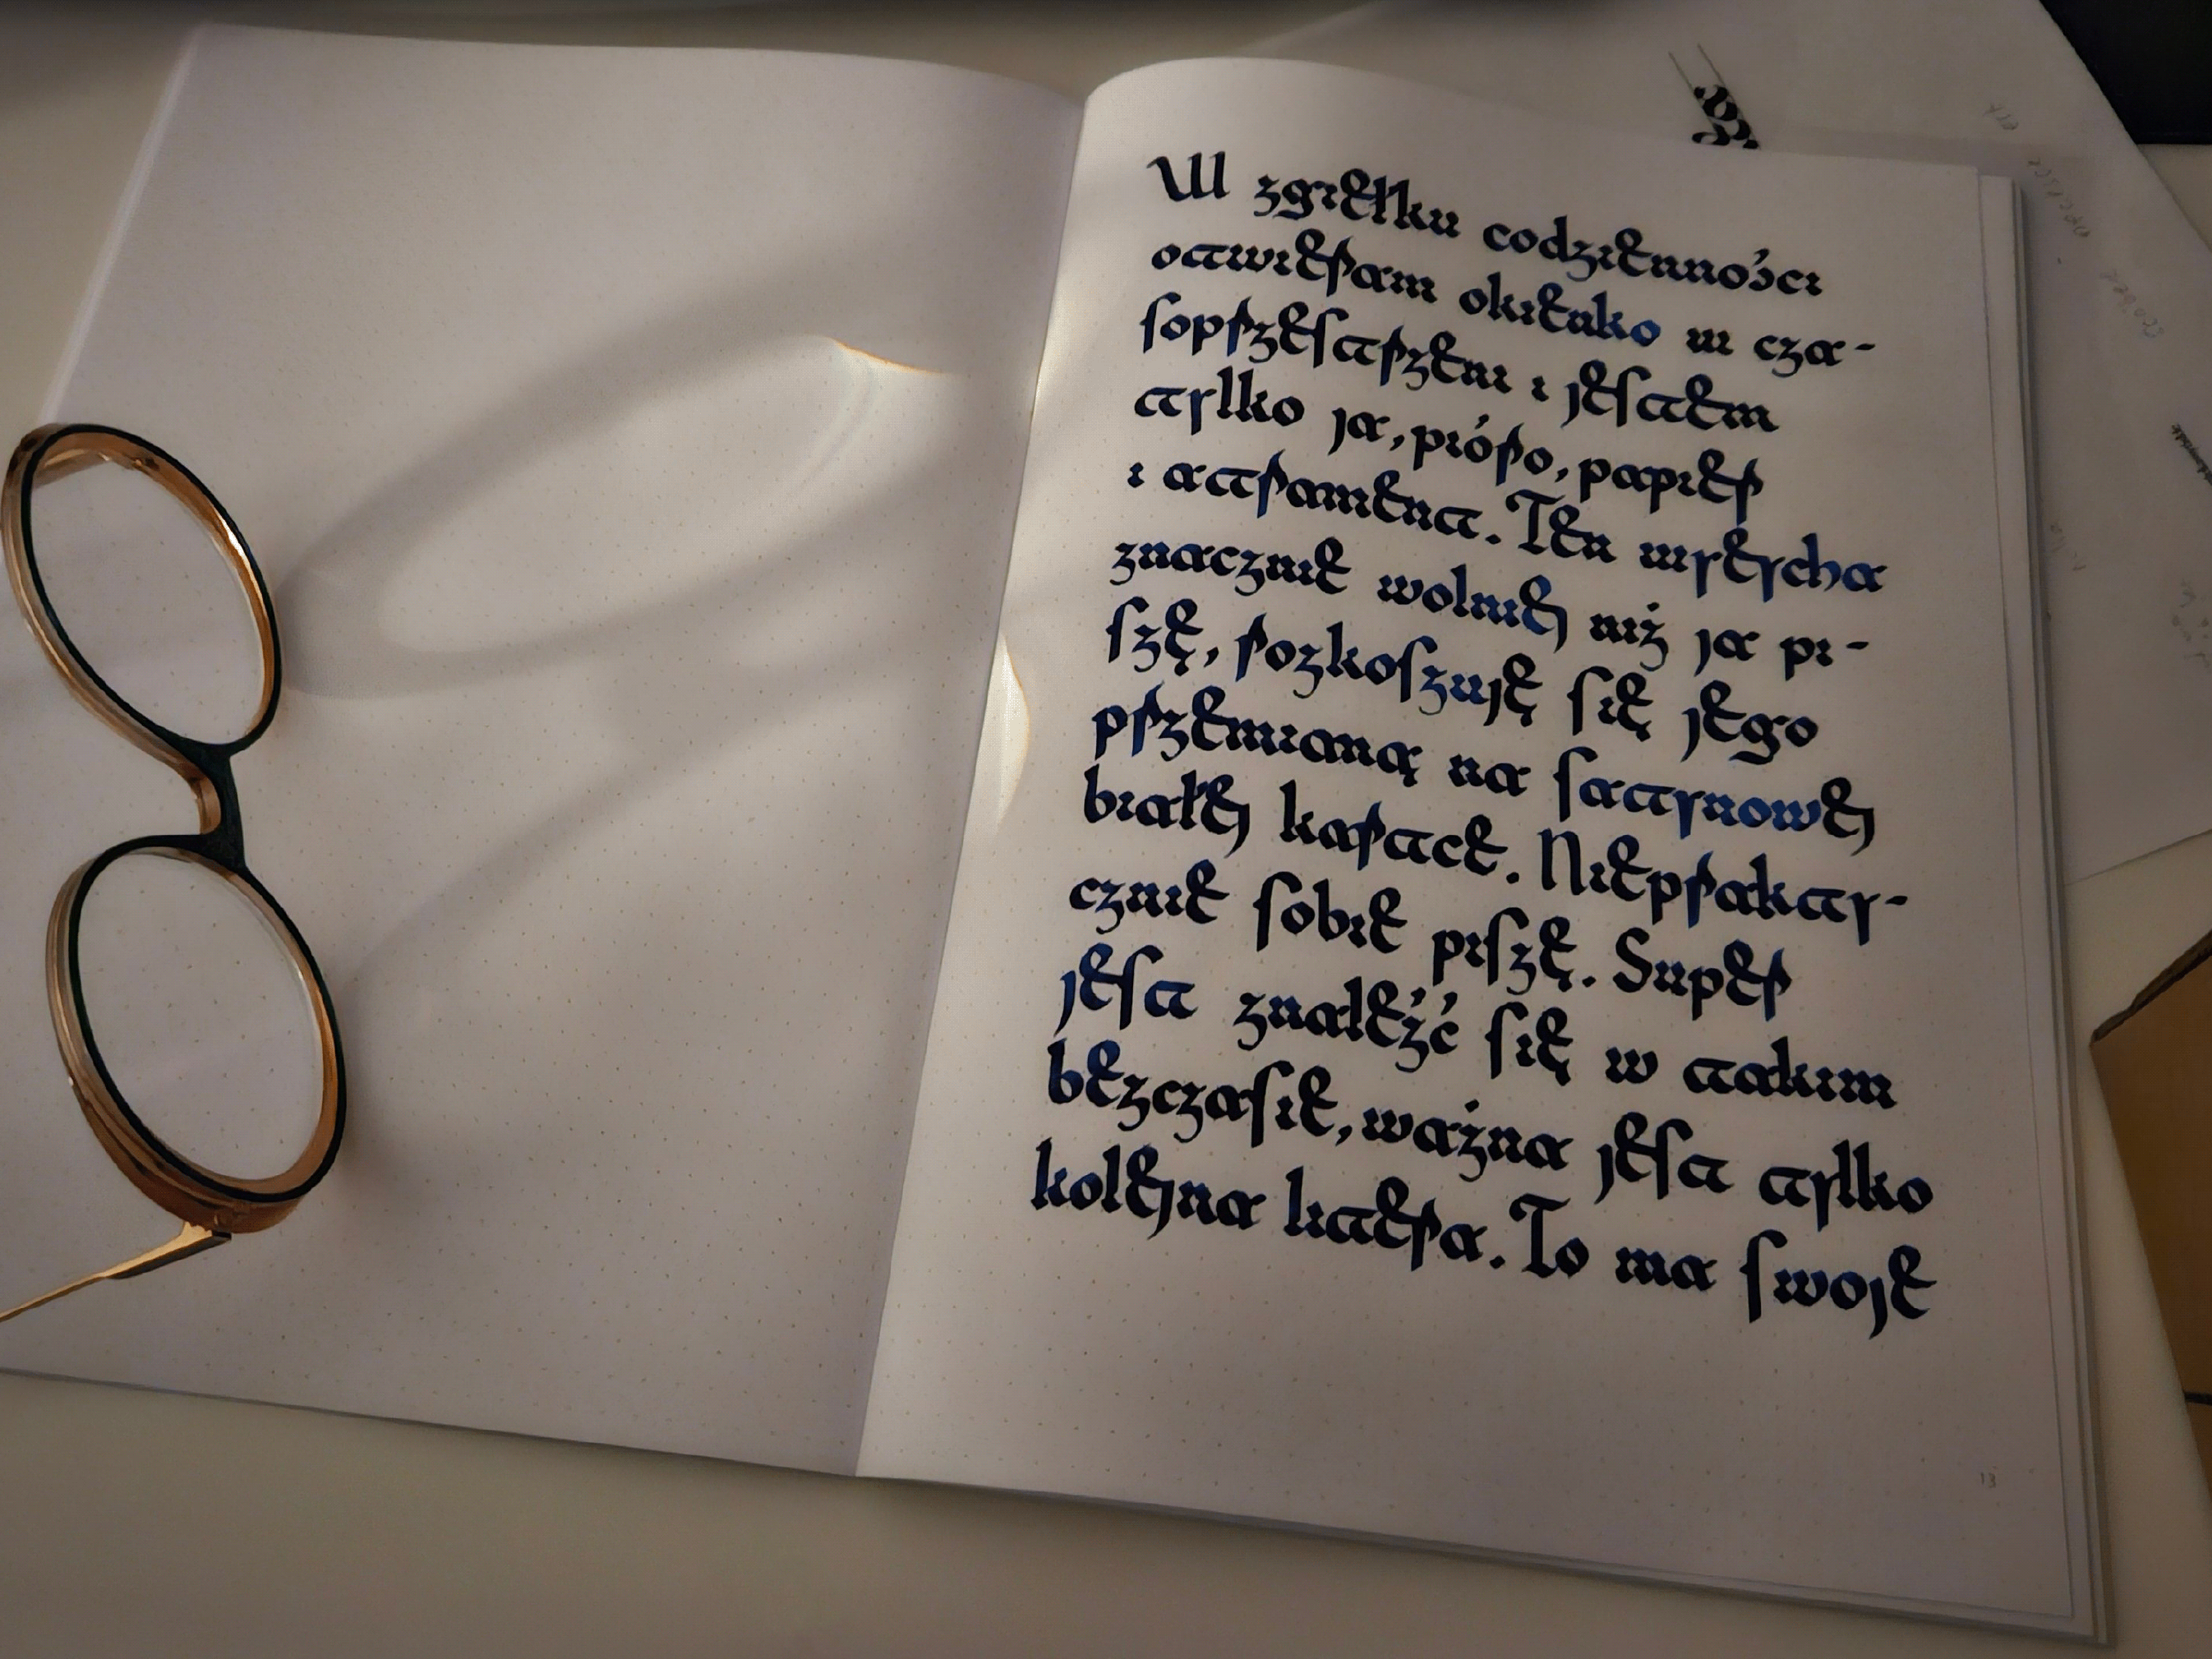 W zgiełku codzienności
otwieram okienko w cza-
soprzestrzeni i jestem
tylko ja, pióro, papier
i atrament. Ten wysycha
znacznie wolniej niż ja pi-
szę, rozkoszuję się jego
przemianą na satynowej
białej kartce. Niepraktyc-
cznie sobie piszę. Super
jest znaleźć się w takim
bezczasie, ważna jest tylko
kolejna litera. To ma swoje
13